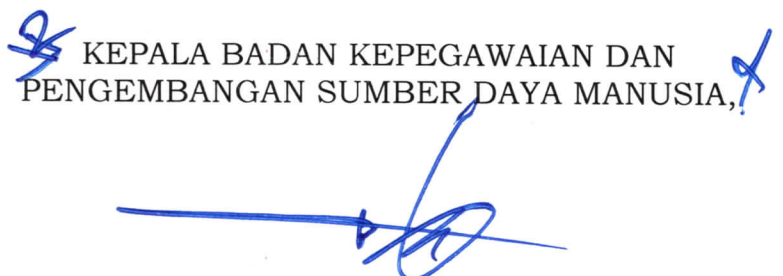 KEPALA BADAN KEPEGAWAIAN DAN
PENGEMBANGAN SUMBER DAYA MANUSIA,